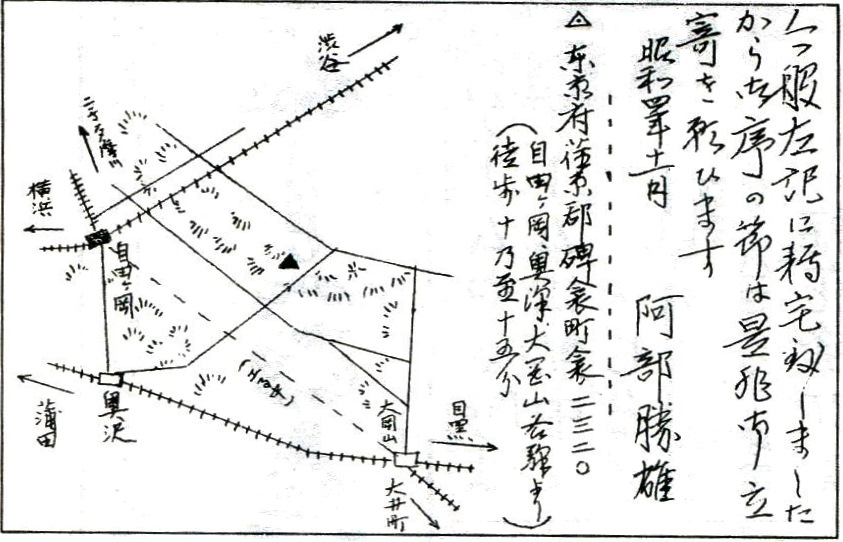 今般左記に転宅致しました
から御序の節は是非御立
寄を願ひます
昭和四年十二月
阿部勝雄
東京府荏原郡碑衾町衾二三二〇
(自由ヶ岡、奥沢、大岡山各駅より
徒歩十乃至十五分)
渋谷
二子多摩川
横浜
自由ヶ岡
奥沢
蒲田
大岡山
目黒
大井町